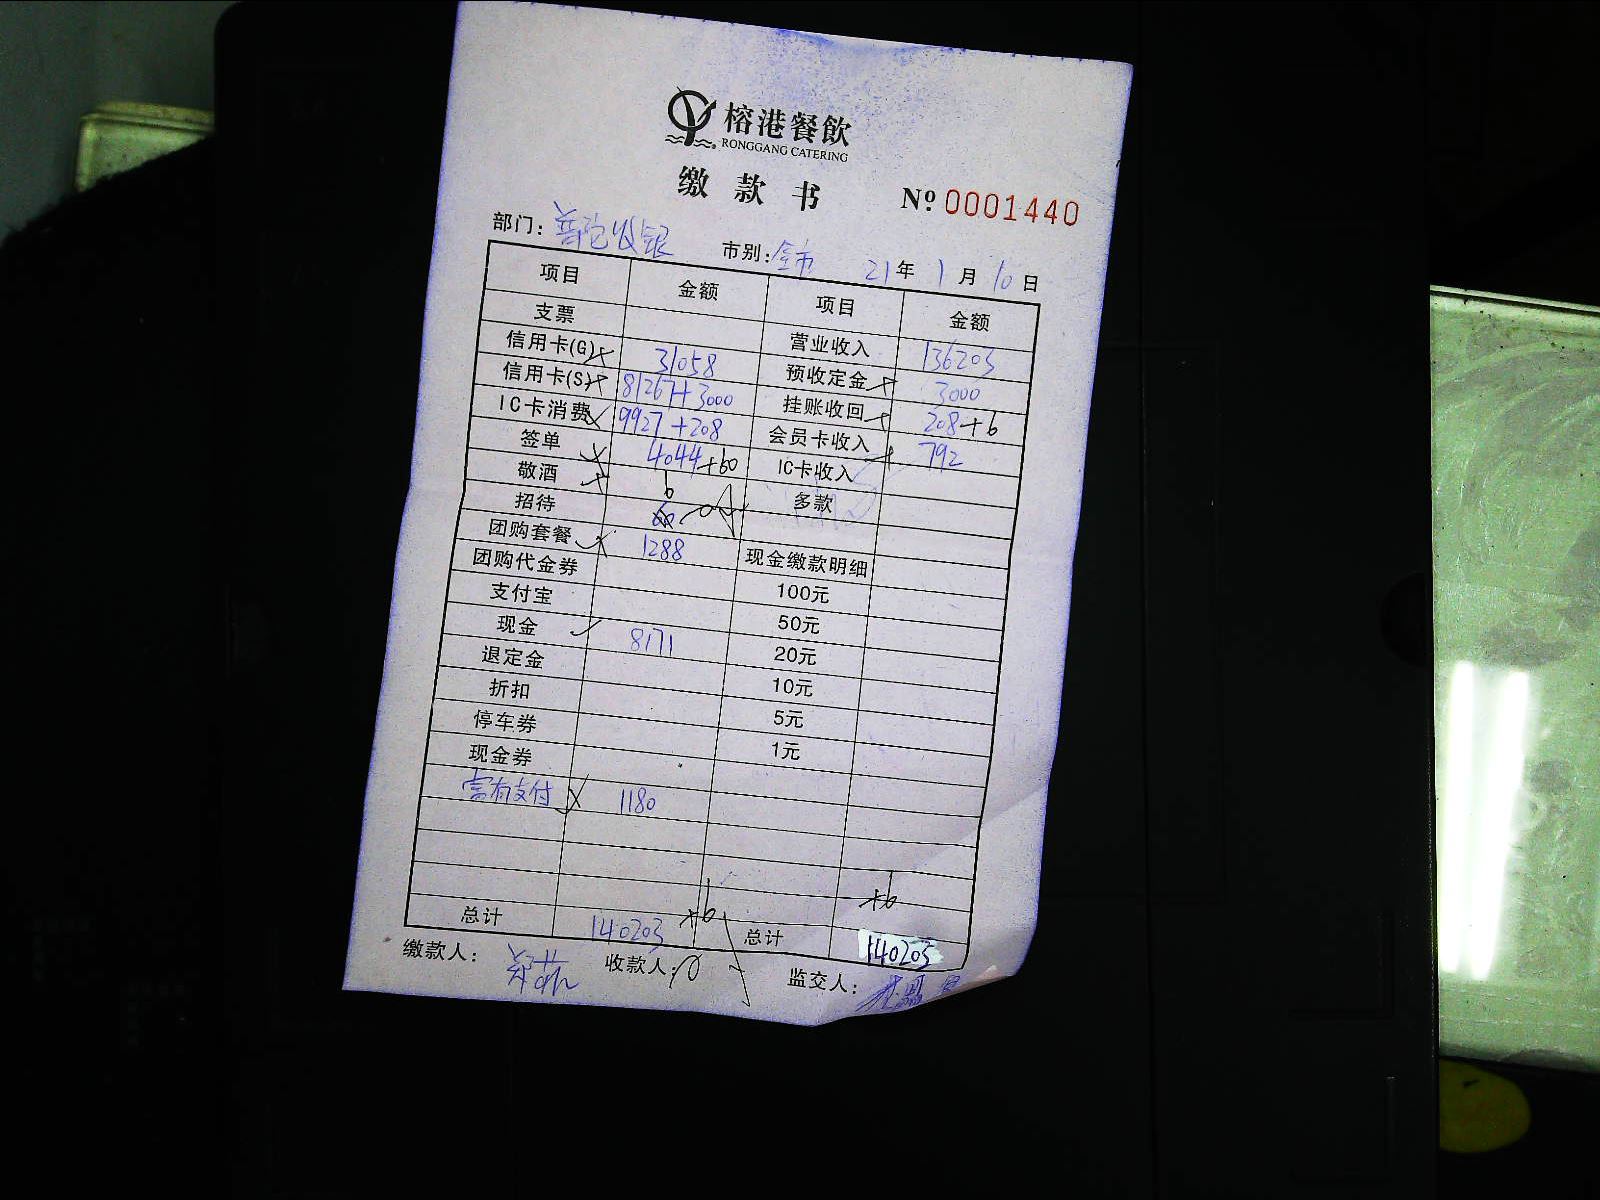 榕港餐飲
RONGGANG CATERING
缴款书 Nº 0001440
部门: 普陀收银 市别: 全市 21年1月10日
项目 金额 项目 金额
支票 营业收入 136203
信用卡(G) 31058 预收定金 3000
信用卡(S) 81267+3000 挂账收回 208+6
IC卡消费 9927+208 会员卡收入 792
签单 4044+60 IC卡收入
敬酒 6 多款
招待 60
团购套餐 1288 现金缴款明细
团购代金券 100元
支付宝 50元
现金 8171 20元
退定金 10元
折扣 5元
停车券 1元
现金券
富有支付 1180
+6 +6
总计 140203 总计 140203
缴款人: 收款人: 监交人: